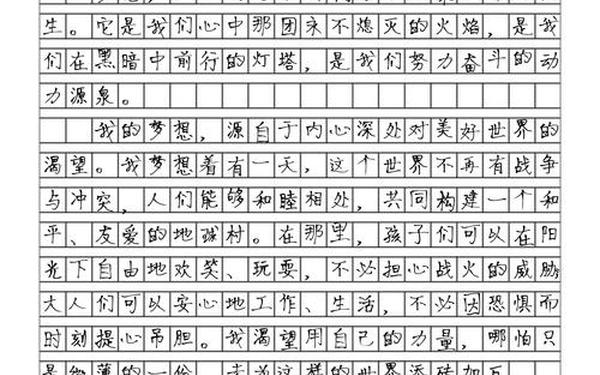 生。它是我们心中那团永不熄灭的火焰，是我
们在黑暗中前行的灯塔，是我们努力奋斗的动
力源泉。
我的梦想，源自于内心深处对美好世界的
渴望。我梦想着有一天，这个世界不再有战争
与冲突，人们能够和睦相处，共同构建一个和
平、友爱的地球村。在那里，孩子们可以在阳
光下自由地欢笑、玩耍，不必担心战火的威胁
大人们可以安心地工作、生活，不必因恐惧而
时刻提心吊胆。我渴望用自己的力量，哪怕只
是微薄的一份，去为这样的世界添砖加瓦。